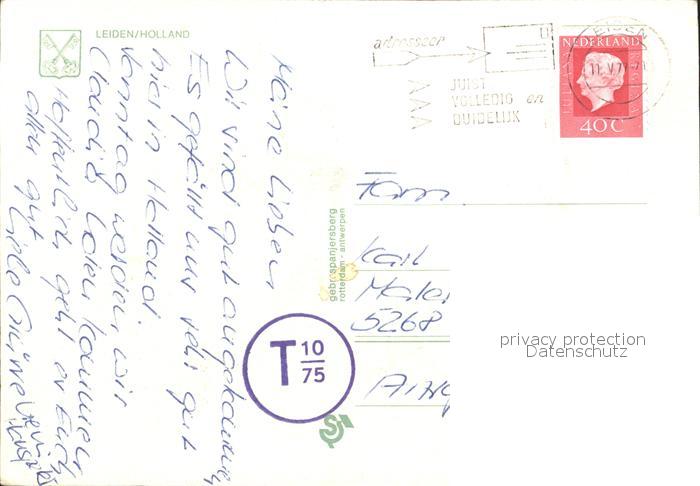 LEIDEN/HOLLAND
Meine Lieben
Wir sind gut angekommen
Es gefällt uns sehr gut
hier in Holland.
Sonntag werden wir
Claudia
Hoffentlich geht es Euch
allen gut
Liebe Grüsse
gebr. spanjersberg
rotterdam - antwerpen
adresseer
JUIST
VOLLEDIG en
DUIDELIJK
LEIDEN
NEDERLAND
JULIANA
40 C
Fam.
Karl
5268
T 10/75
privacy protection
Datenschutz